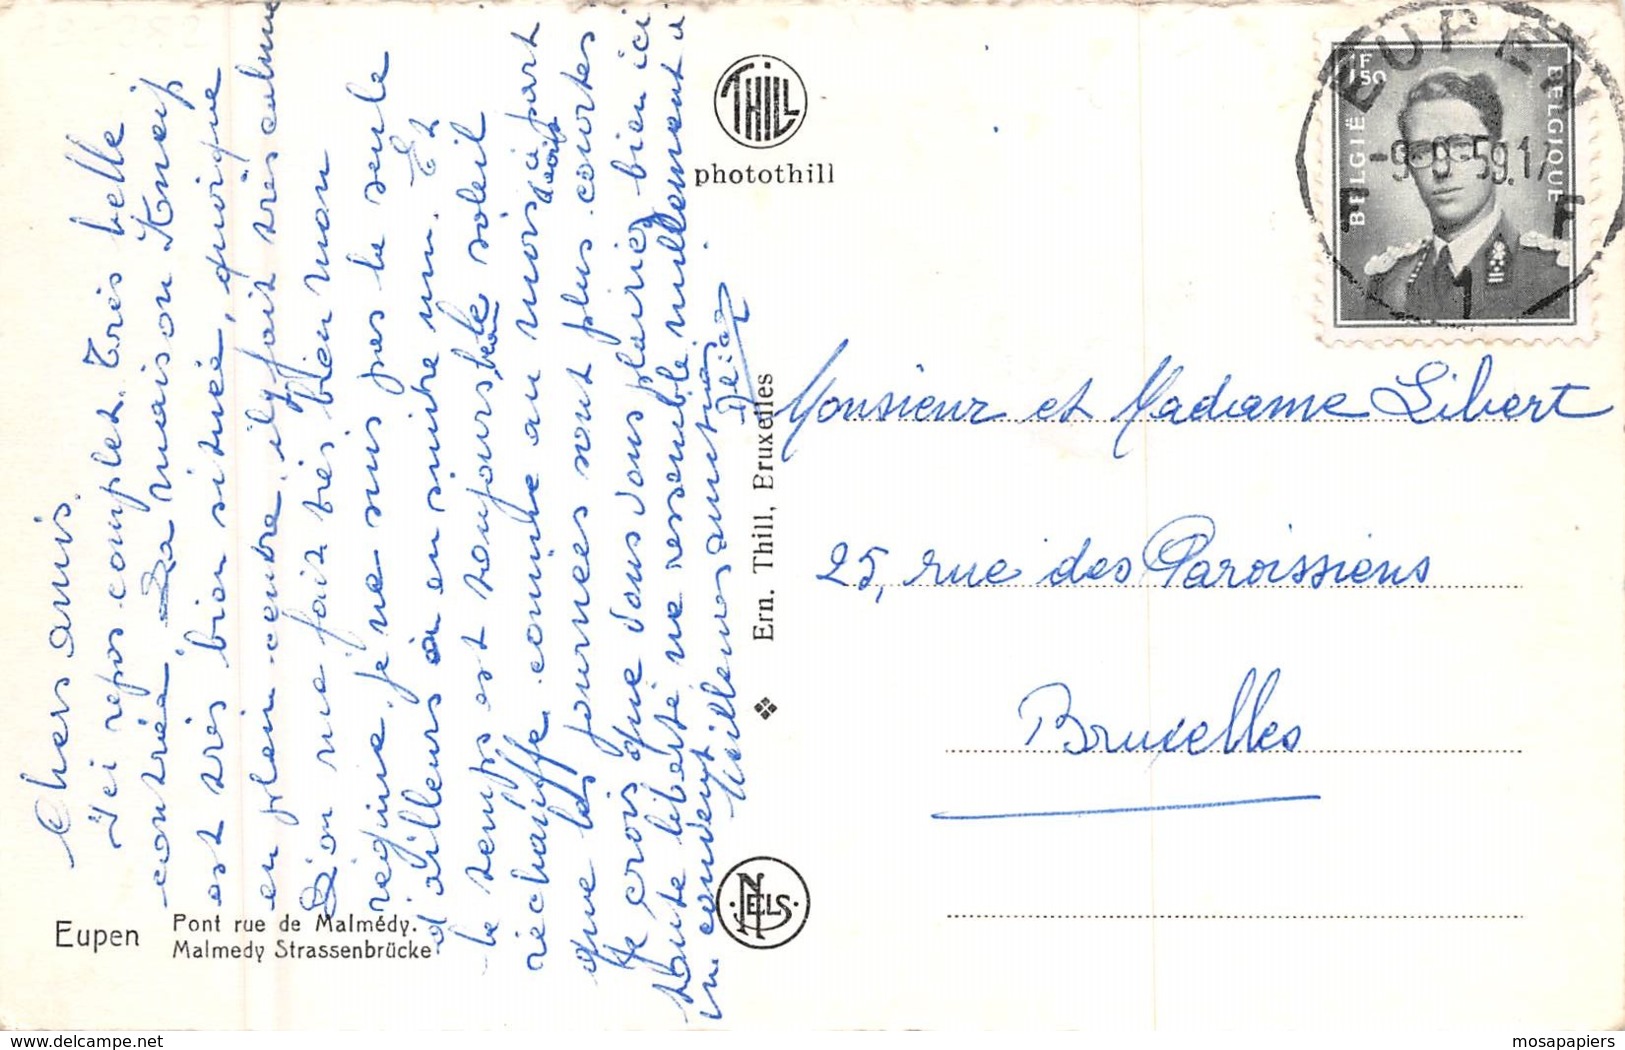 Chers amis.
Ici repos complet. Très belle
contrée, La maison Kneip
est très bien située, quoique
en plein centre, il y fait très calme
Mon me fait très bien mon
régime, je ne suis pas la seule
d'ailleurs à en suivre un. Et
le temps est toujours beau, le soleil
réchauffe comme au mois d'août à part
que les journées sont plus courtes
Je crois que vous vous plairiez bien ici
toute liberté me ressemble nullement à
un couvent
Meilleures amitiés
photothill
THILL
Ern. Thill, Bruxelles
NELS
Eupen
Pont rue de Malmédy.
Malmedy Strassenbrücke
EUPEN
-9-9-59.17
1
F 1 50
BELGIË
BELGIQUE
Monsieur et Madame Libert
25, rue des Paroissiens
Bruxelles
www.delcampe.net
mosapapiers